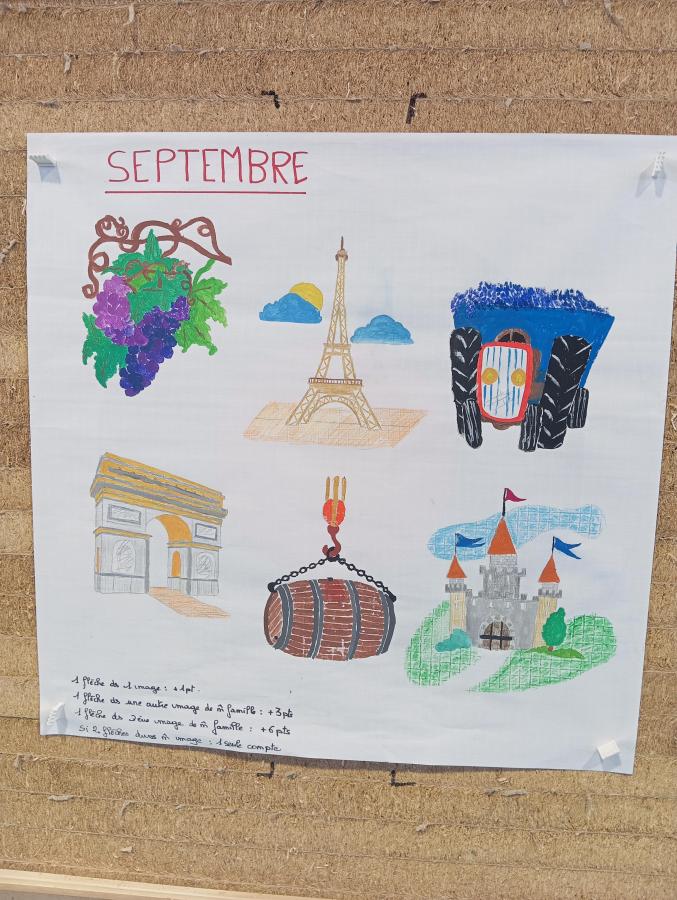 SEPTEMBRE
1 flèche ds 1 image : +1pt.
1 flèche ds une autre image de m̂ famille : +3pts
1 flèche ds 3ème image de m̂ famille : +6pts
Si 2 flèches dans m̂ image : 1 seule compte